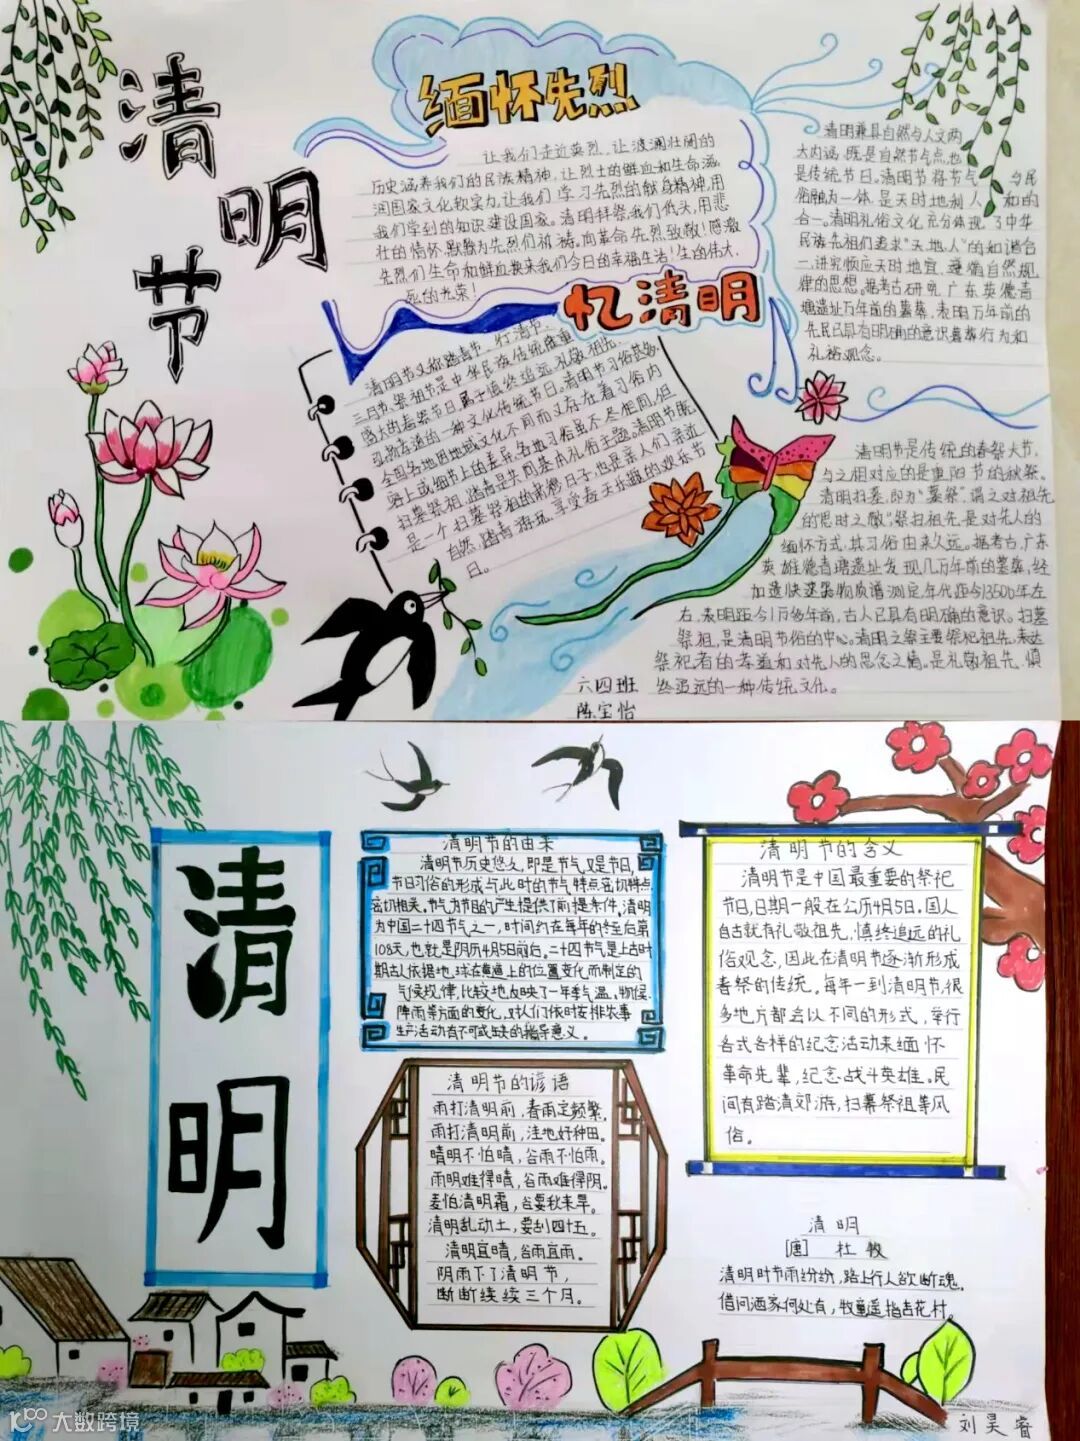 清明节
缅怀先烈
让我们走近英烈,让波澜壮阔的
历史涵养我们的民族精神,让烈士的鲜血和生命滋
润国家文化软实力,让我们学习先烈的献身精神,用
我们学到的知识建设国家。清明拜祭我们低头,用悲
壮的情怀,默默为先烈们祈祷,向革命先烈致敬!感激
先烈们生命和鲜血换来我们今日的幸福生活!生的伟大,
死的光荣!
忆清明
清明节又称踏青节、行清节、
三月节、祭祖节是中华民族传统隆重
盛大的春祭节日,属于慎终追远、礼敬祖先、
弘扬孝道的一种文化传统节日。清明节习俗甚多,
全国各地因地域文化不同而又存在着习俗内
容上或细节上的差异,各地习俗虽不尽相同,但
扫墓祭祖、踏青是共同基本礼俗主题。清明节既
是一个扫墓祭祖的肃穆日子,也是亲人们亲近
自然、踏青游玩、享受春天乐趣的欢乐节
日。
清明兼具自然与人文两
大内涵,既是自然节气点,也
是传统节日。清明节将节气与民
俗融为一体,是天时地利人和的
合一。清明礼俗文化充分体现了中华
民族先祖们追求“天、地、人”的和谐合
一,讲究顺应天时地宜、遵循自然规
律的思想。据考古研究,广东英德青
塘遗址万年前的墓葬,表明万年前的
先民已具有明确的意识墓葬行为和
礼俗观念。
清明节是传统的春祭大节,
与之相对应的是重阳节的秋祭。
清明扫墓,即为“墓祭”,谓之对祖先
的思时之敬”,祭扫祖先是对先人的
缅怀方式,其习俗由来久远。据考古,广东
英雄德青塘遗址发现几万年前的墓葬,经
加速快速器物质谱测定,年代距今13500年左
右,表明距今1万多年前,古人已具有明确的意识。扫墓
祭祖,是清明节俗的中心。清明之祭主要祭祀祖先,表达
祭祀者的孝道和对先人的思念之情。是礼敬祖先、慎
终追远的一种传统文化。
六四班
陈宝怡
清明
清明节的由来
清明节历史悠久,即是节气又是节日,
节日习俗的形成与此时的节气特点密切特点
密切相关。节气为节日的产生提供了前提条件。清明
为中国二十四节气之一,时间约在每年的冬至后第
108天,也就是阴历4月5日前后。二十四节气是上古时
期古人依据地球在黄道上的位置变化而制定的
气候规律,比较地反映了一年季气温、物候、
降雨等方面的变化,对人们依时安排农事
生产活动有不可或缺的指导意义。
清明节的谚语
雨打清明前,春雨定频繁。
雨打清明前,洼地好种田。
晴明不怕晴,谷雨不怕雨。
雨明难得晴,谷雨难得阴。
麦怕清明霜,谷要秋来旱。
清明乱动土,要刮四十五。
清明宜晴,谷雨宜雨。
阴雨下了清明节,
断断续续三个月。
清明节的含义
清明节是中国最重要的祭祀
节日,日期一般在公历4月5日。国人
自古就有礼敬祖先、慎终追远的礼
俗观念,因此在清明节逐渐形成
春祭的传统。每年一到清明节,很
多地方都会以不同的形式,举行
各式各样的纪念活动来缅怀
革命先辈,纪念战斗英雄。民
间有踏清郊游,扫幕祭祖等风
俗。
清明
[唐] 杜牧
清明时节雨纷纷,路上行人欲断魂。
借问酒家何处有,牧童遥指杏花村。
刘昊睿
K°° 大数跨境